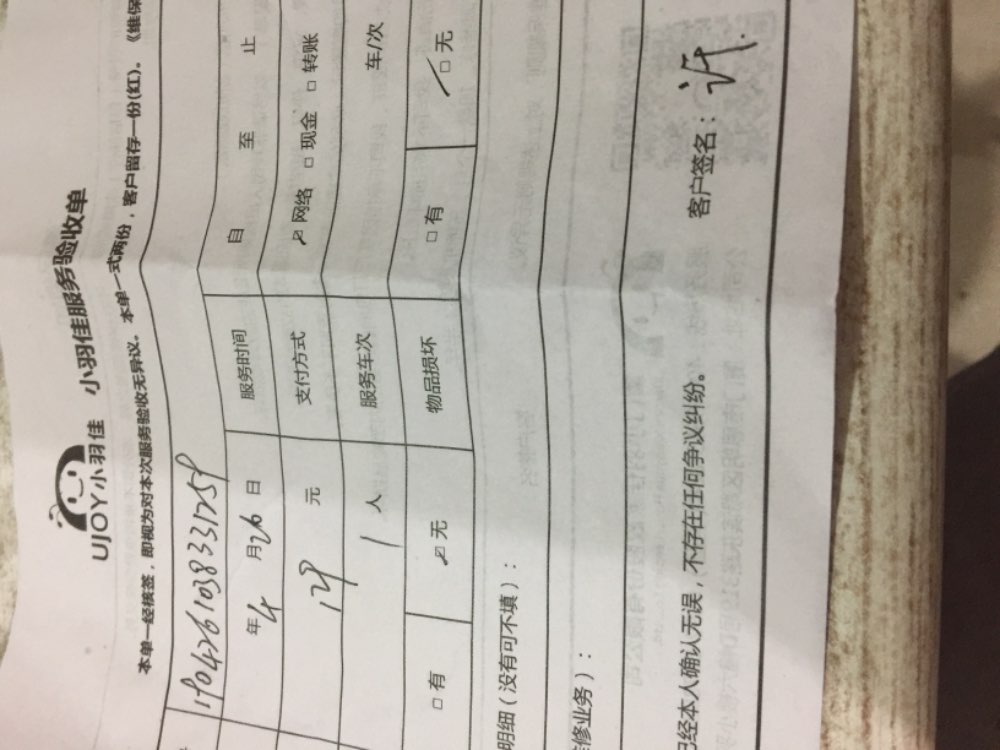 UJOY小羽佳 小羽佳服务验收单
本单一经核签，即视为对本次服务验收无异议。本单一式两份，客户留存一份(红)。《维保
年4月26日 服务时间 自 至 止
128 元 支付方式 ☑网络 □现金 □转账
1 人 服务车次 车/次
□有 ☑无 物品损坏 □有 □无
明细（没有可不填）：
修业务）：
已经本人确认无误，不存在任何争议纠纷。 客户签名：许